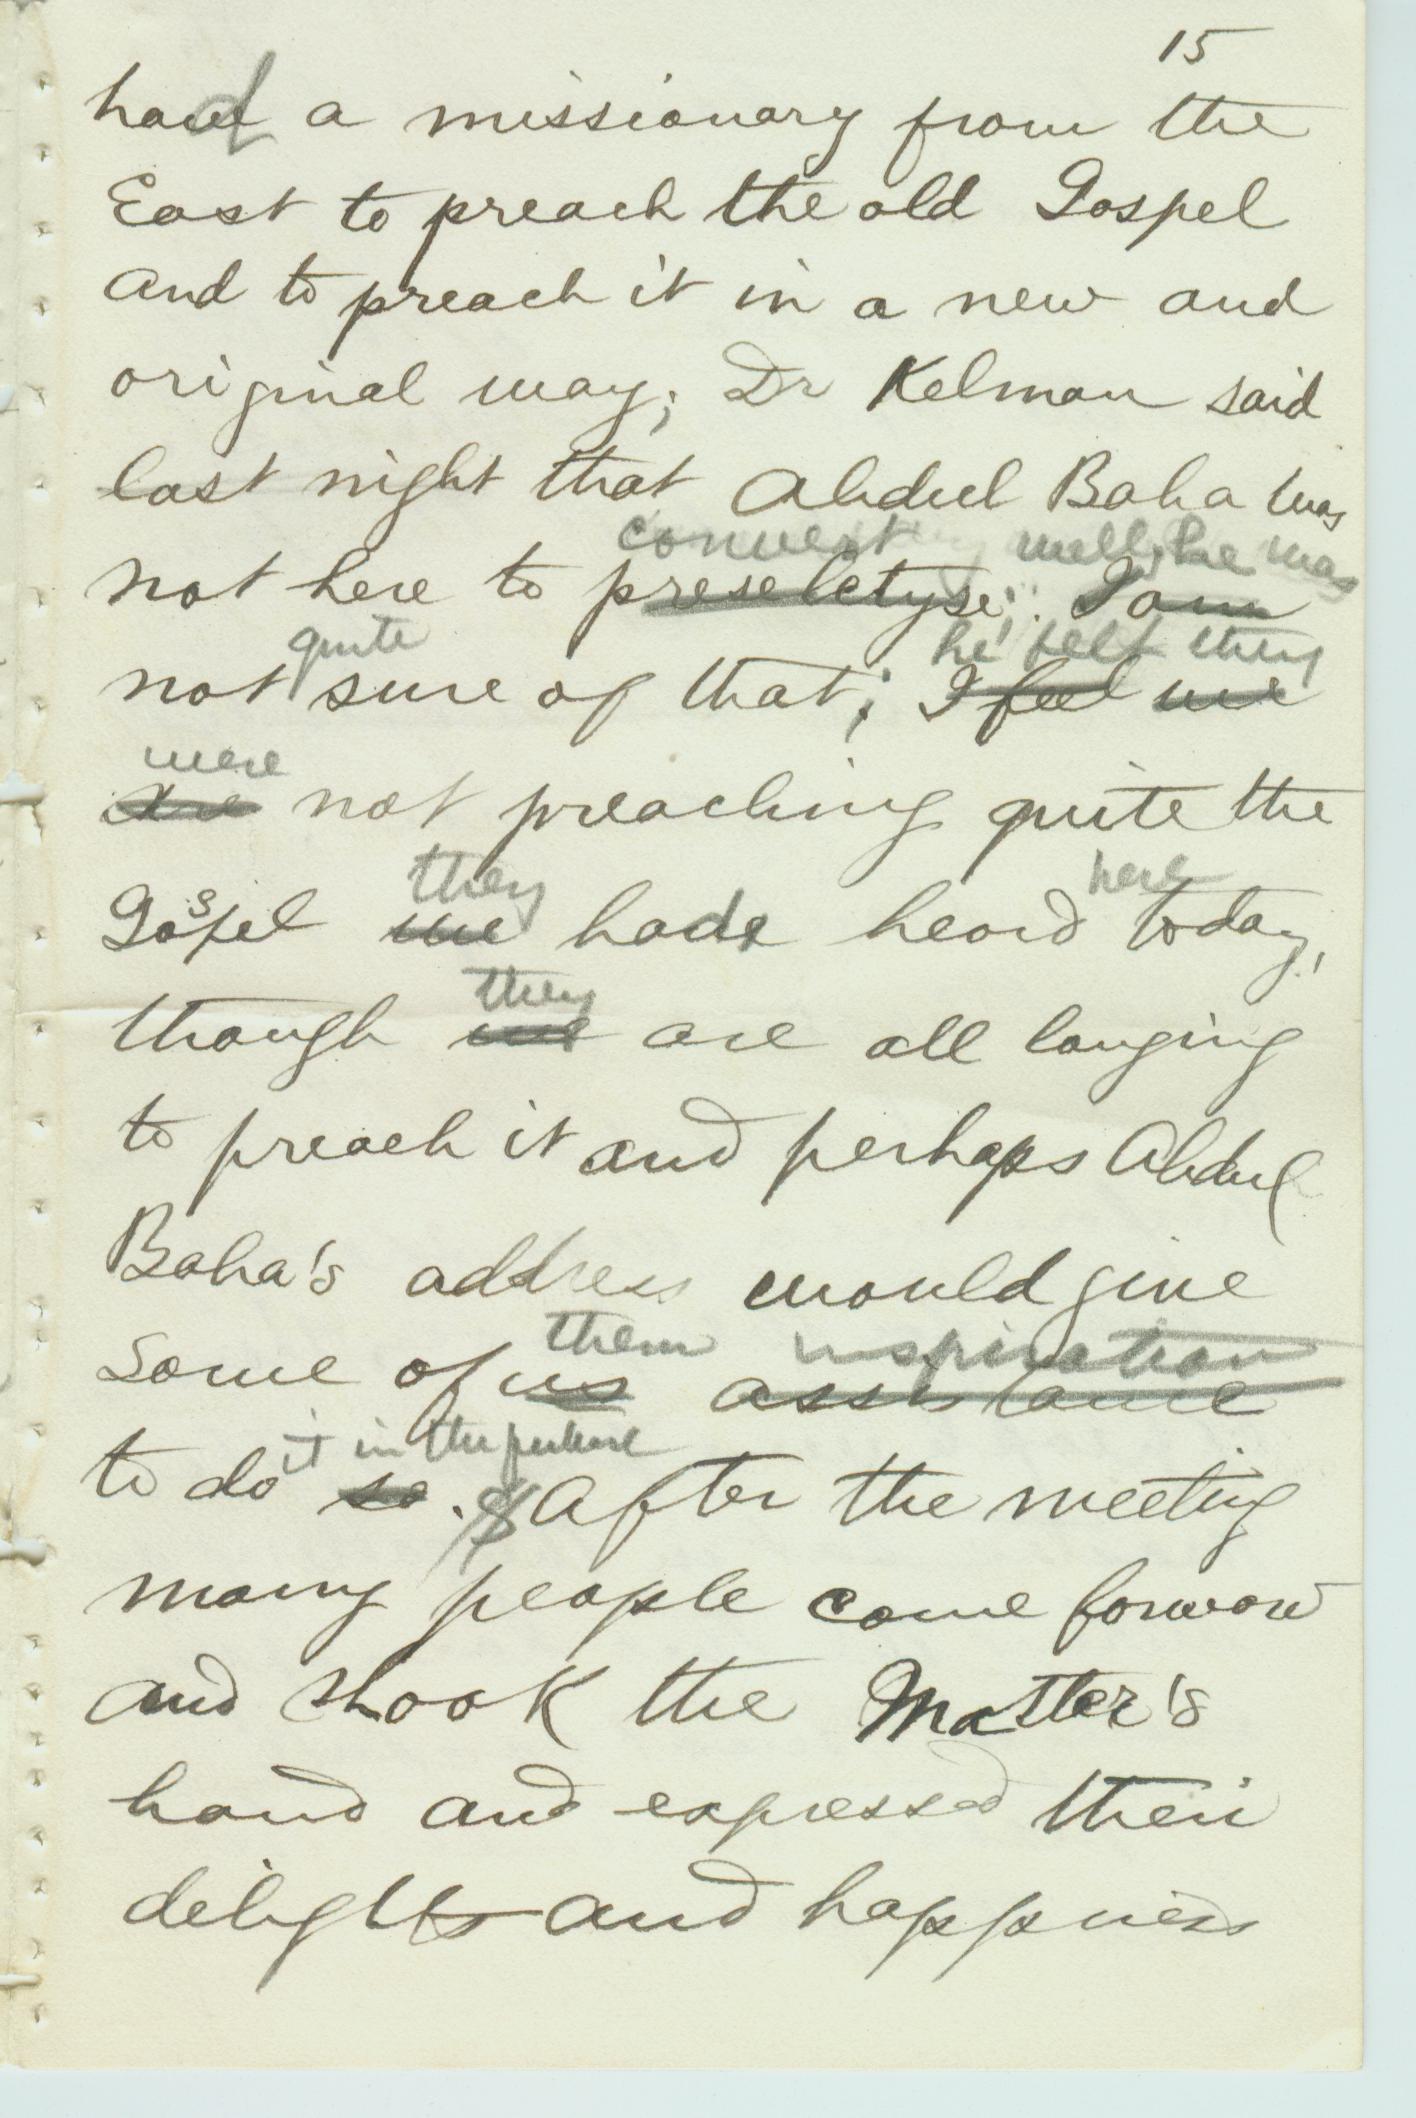 15
had a missionary from the
East to preach the old Gospel
and to preach it in a new and
original way; Dr Kelman said
last night that Abdul Baha was
convert well, he was
not here to preseletyse. I am
quite he felt they
not sure of that; I feel we
were
are not preaching quite the
they here
Gospel we had heard today,
they
though we are all longing
to preach it and perhaps Abdul
Baha's address would give
them inspiration
some of us assistance
it in the future
to do so. After the meeting
many people came forward
and shook the Master's
hand and expressed their
delight and happiness